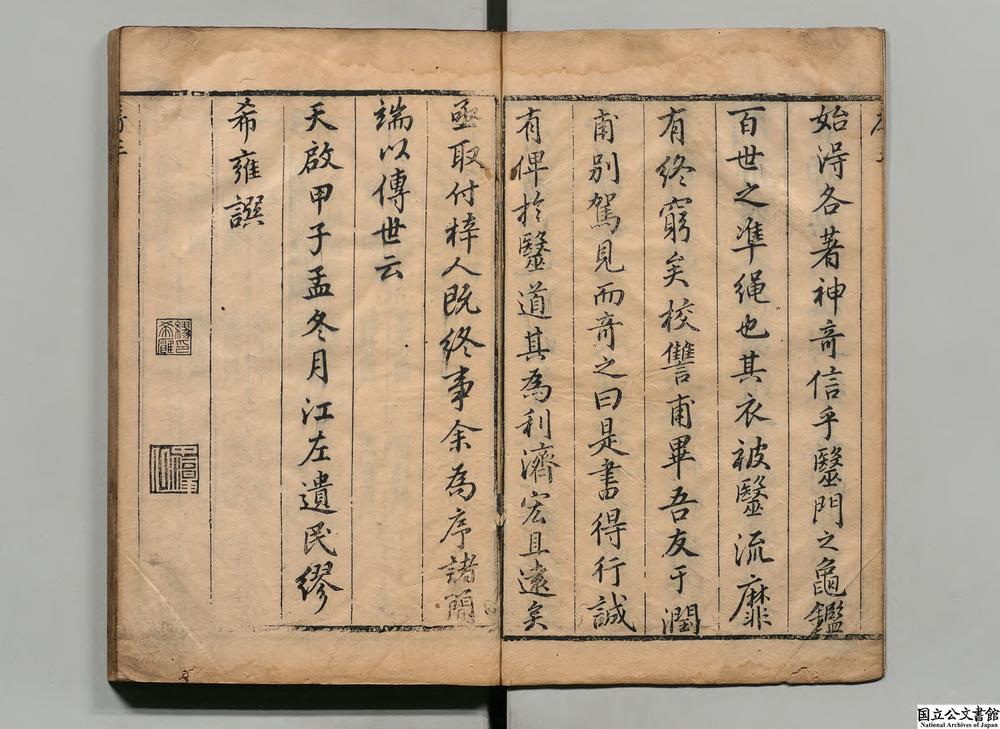 始淂各著神竒信乎毉門之龜鑑
百世之凖繩也其衣被毉流靡
有終窮矣校讐甫畢吾友于潤
甫別駕見而竒之曰是書得行誠
有俾於毉道其為利濟宏且遠矣
亟取付梓人既終事余為序諸簡
端以傳世云
天啟甲子孟冬月江左遺民繆
希雍譔
繆印希雍
国立公文書館
National Archives of Japan